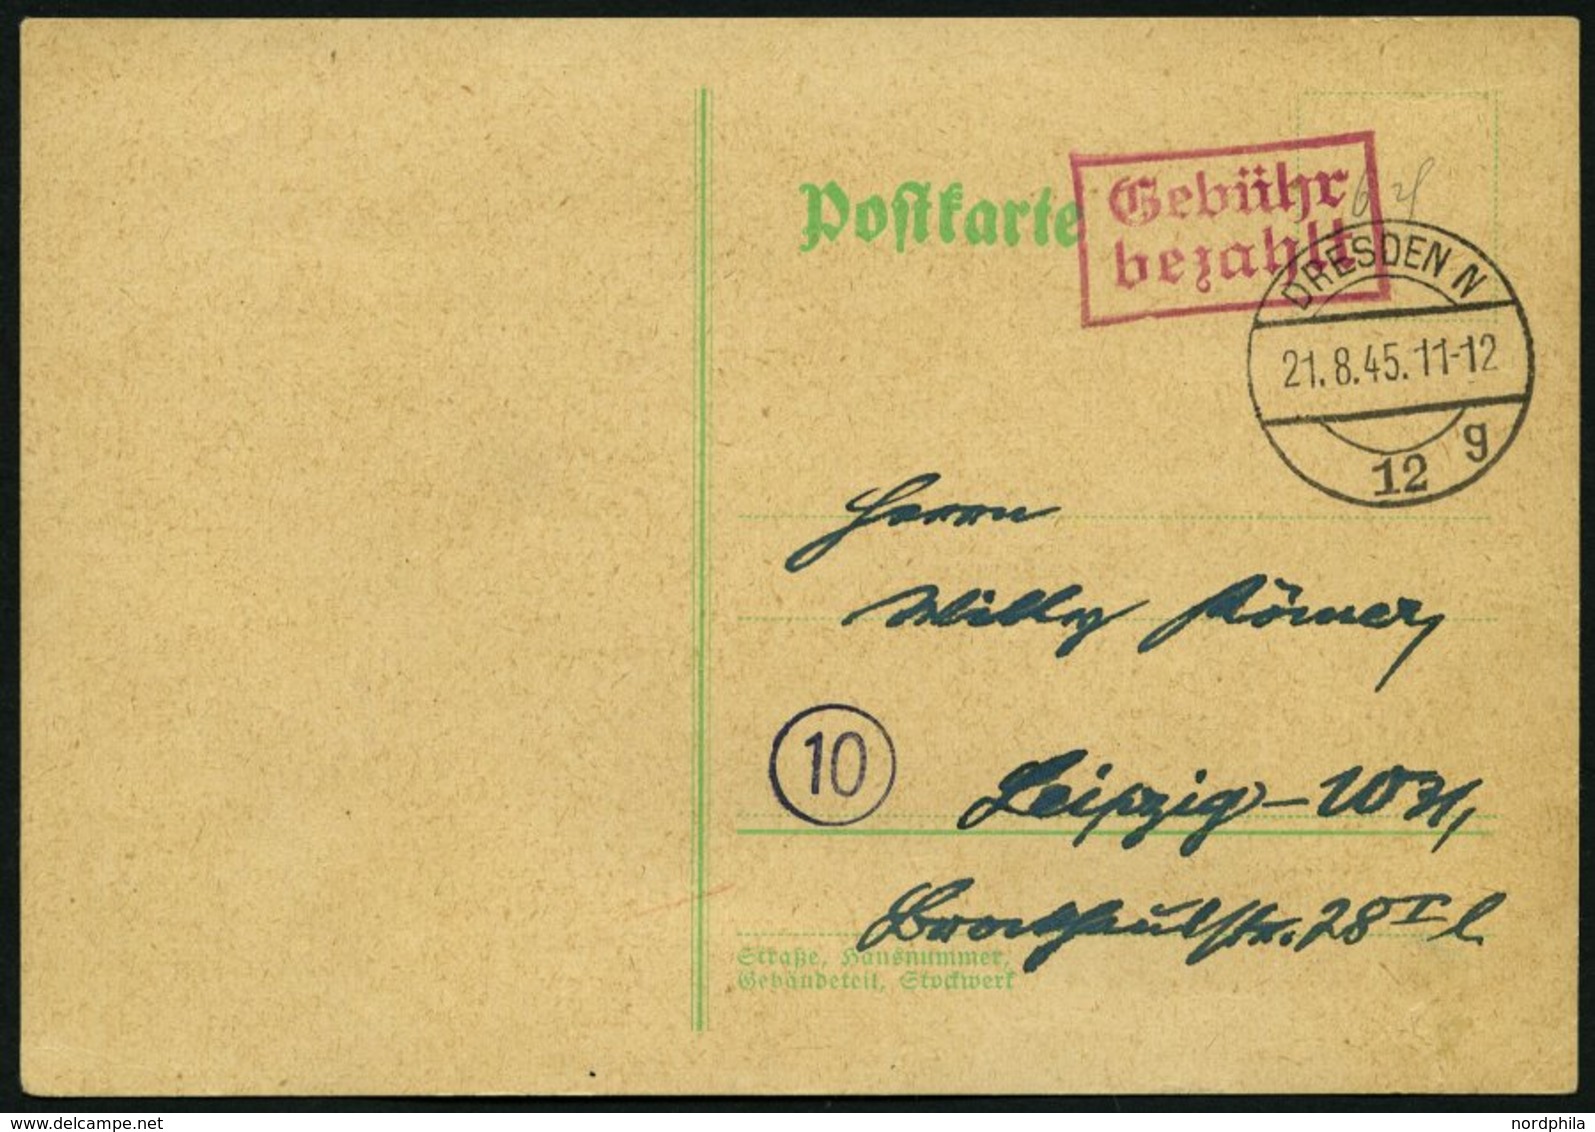 Postkarte
Gebühr
bezahlt
6 Rpf
DRESDEN N
21.8.45.11-12
12 g
Herrn
Willy Römer,
10
Leipzig-W 31,
Brockhausstr. 28 I l
Straße, Hausnummer,
Gebäudeteil, Stockwerk
www.delcampe.net
nordphila